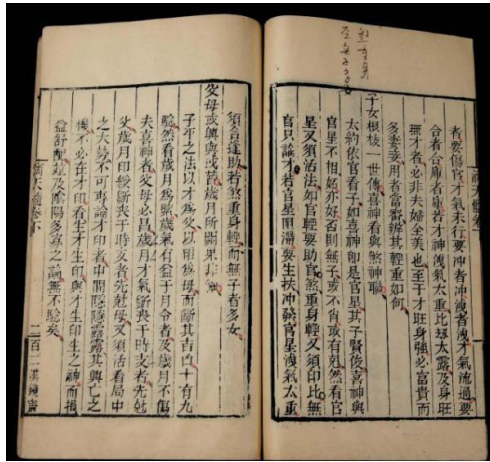 滴天髓卷
者要傷官才氣未行要冲者冲洩者洩才氣流通要
合者合庫者庫若才神洩氣太重比刼太露及身旺
無才者必非夫婦全美也至于才旺身強必富貴而
多妻妾用者當審辨其輕重如何
子女根枝一世傳喜神看與煞神聯
太約依官看子如喜神即是官星其子賢俊喜神與
官星不相妬亦好否則無子或不肖或有尅然有官
星又須活法如官輕要助官煞重身輕又須印比無
官只論才若官星阻滯要生扶冲發官星洩氣太重
須合逢助若煞重身輕而無子者多女
父母或興與或替歲月所關果非細
子平之法以才為父以印為母而斷其吉凶十有九
驗然看歲月為緊歲氣有益于月令者及歲月不傷
夫喜神者父母必昌歲月才氣斲喪于時支者先尅
父歲月印綬斲喪于時支者先尅母又須活看局中
之大勢不可專論才印者中間隱隱露露其興亡之
機不必在才印看生才生印與才生印生之神而損
益舒配得及陰陽多寡之論無不驗矣
滴天髓卷下
二百二